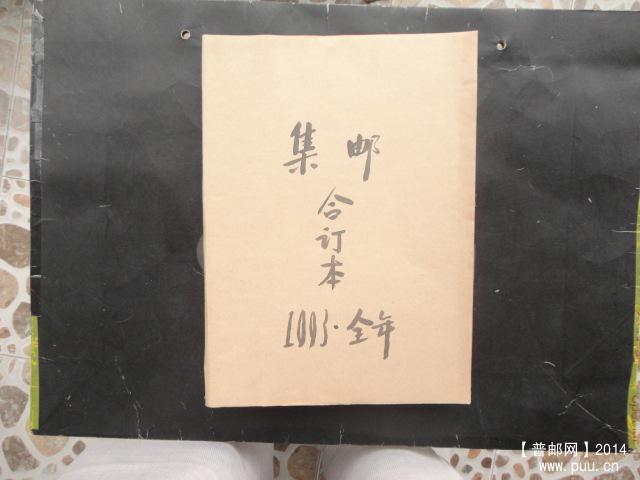 集邮
合订本
1993·全年
【普邮网】2014
www.puu.cn